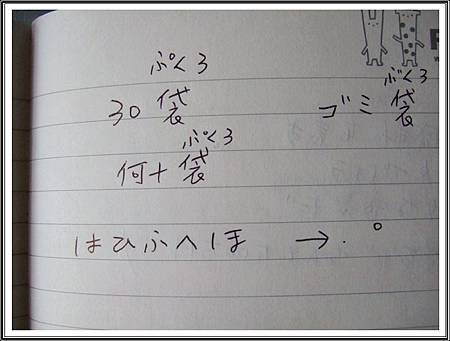 ぷくろ
30 袋 ゴミ袋
ぶくろ
何十袋
ぷくろ
はひふへほ → . °